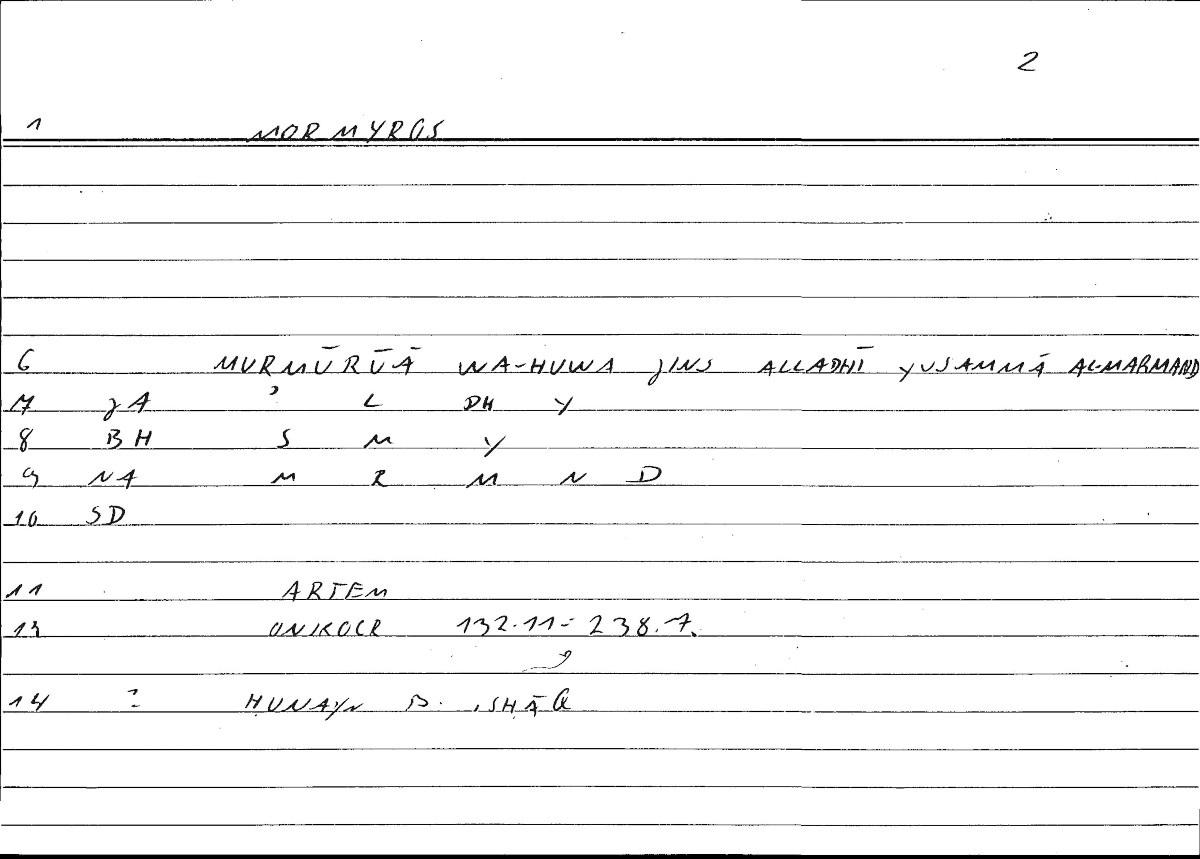 2
1 MORMYROS
6 MURMŪRŪĀ WA-HUWA JINS ALLADHĪ YUSAMMĀ AL-MARMAND
7 JA ʾ L DH Y
8 BH S M Y
9 NA M R M N D
10 SD
11 ARTEM
13 ONIKOCR 132.11- 238.7.
14 : ḤUNAYN B. ISḤĀQ